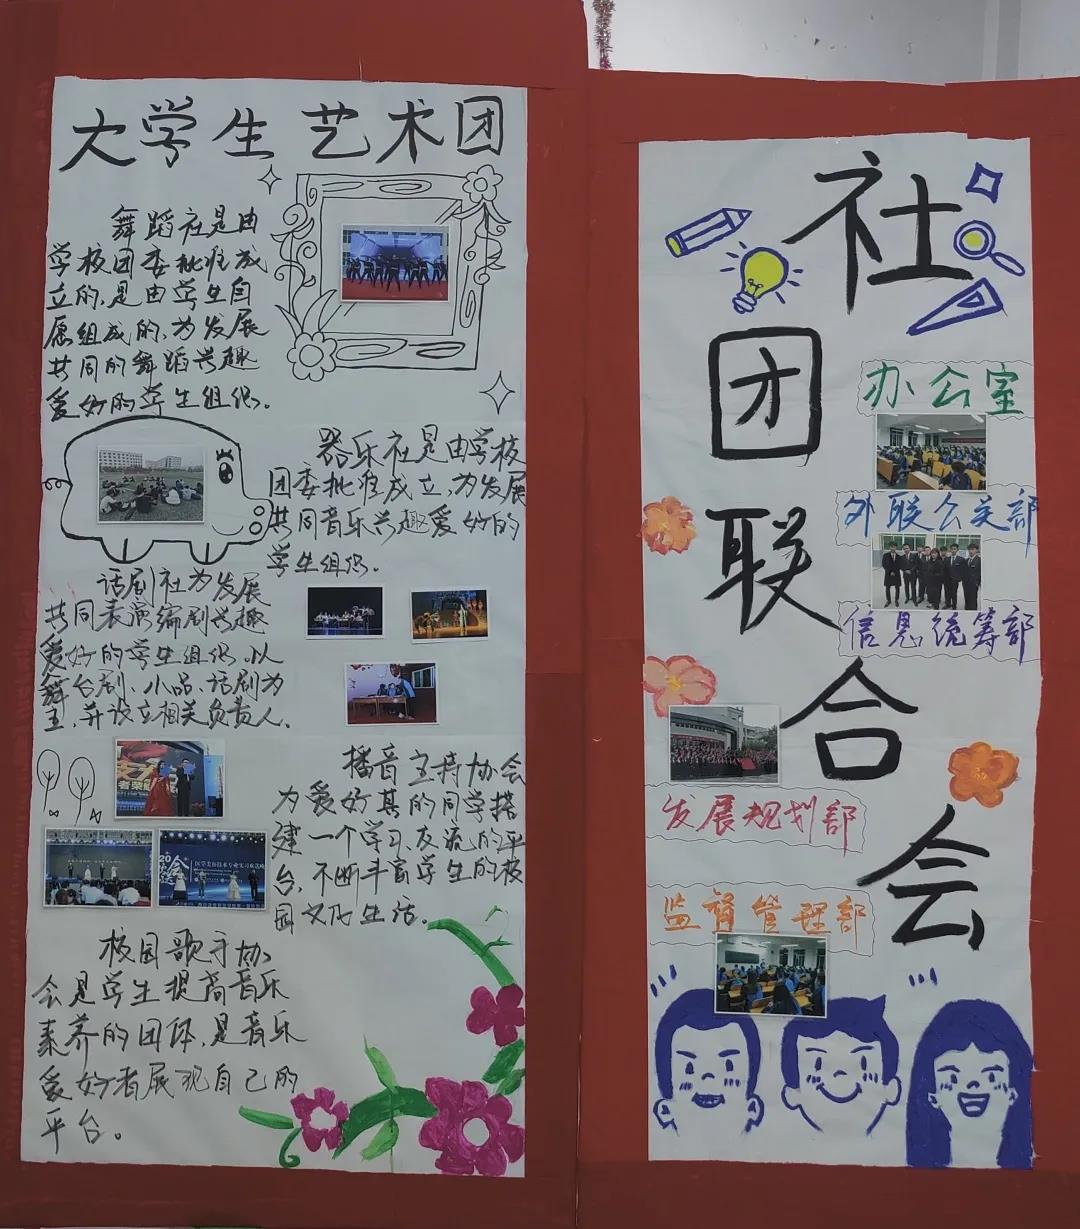 大学生艺术团
舞蹈社是由
学校团委批准成
立的,是由学生自
愿组成的,为发展
共同的舞蹈兴趣
爱好的学生组织。
器乐社是由学校
团委批准成立,为发展
共同音乐兴趣爱好的
学生组织。
话剧社为发展
共同表演编剧兴趣
爱好的学生组织,以
舞台剧、小品、话剧为
主,并设立相关负责人.
播音主持协会
为爱好其的同学搭
建一个学习,交流的平
台,不断丰富学生的校
园文化生活.
校园歌手协
会是学生提高音乐
素养的团体,是音乐
爱好者展现自己的
平台。
社团联合会
办公室
外联公关部
信息统筹部
发展规划部
监督管理部